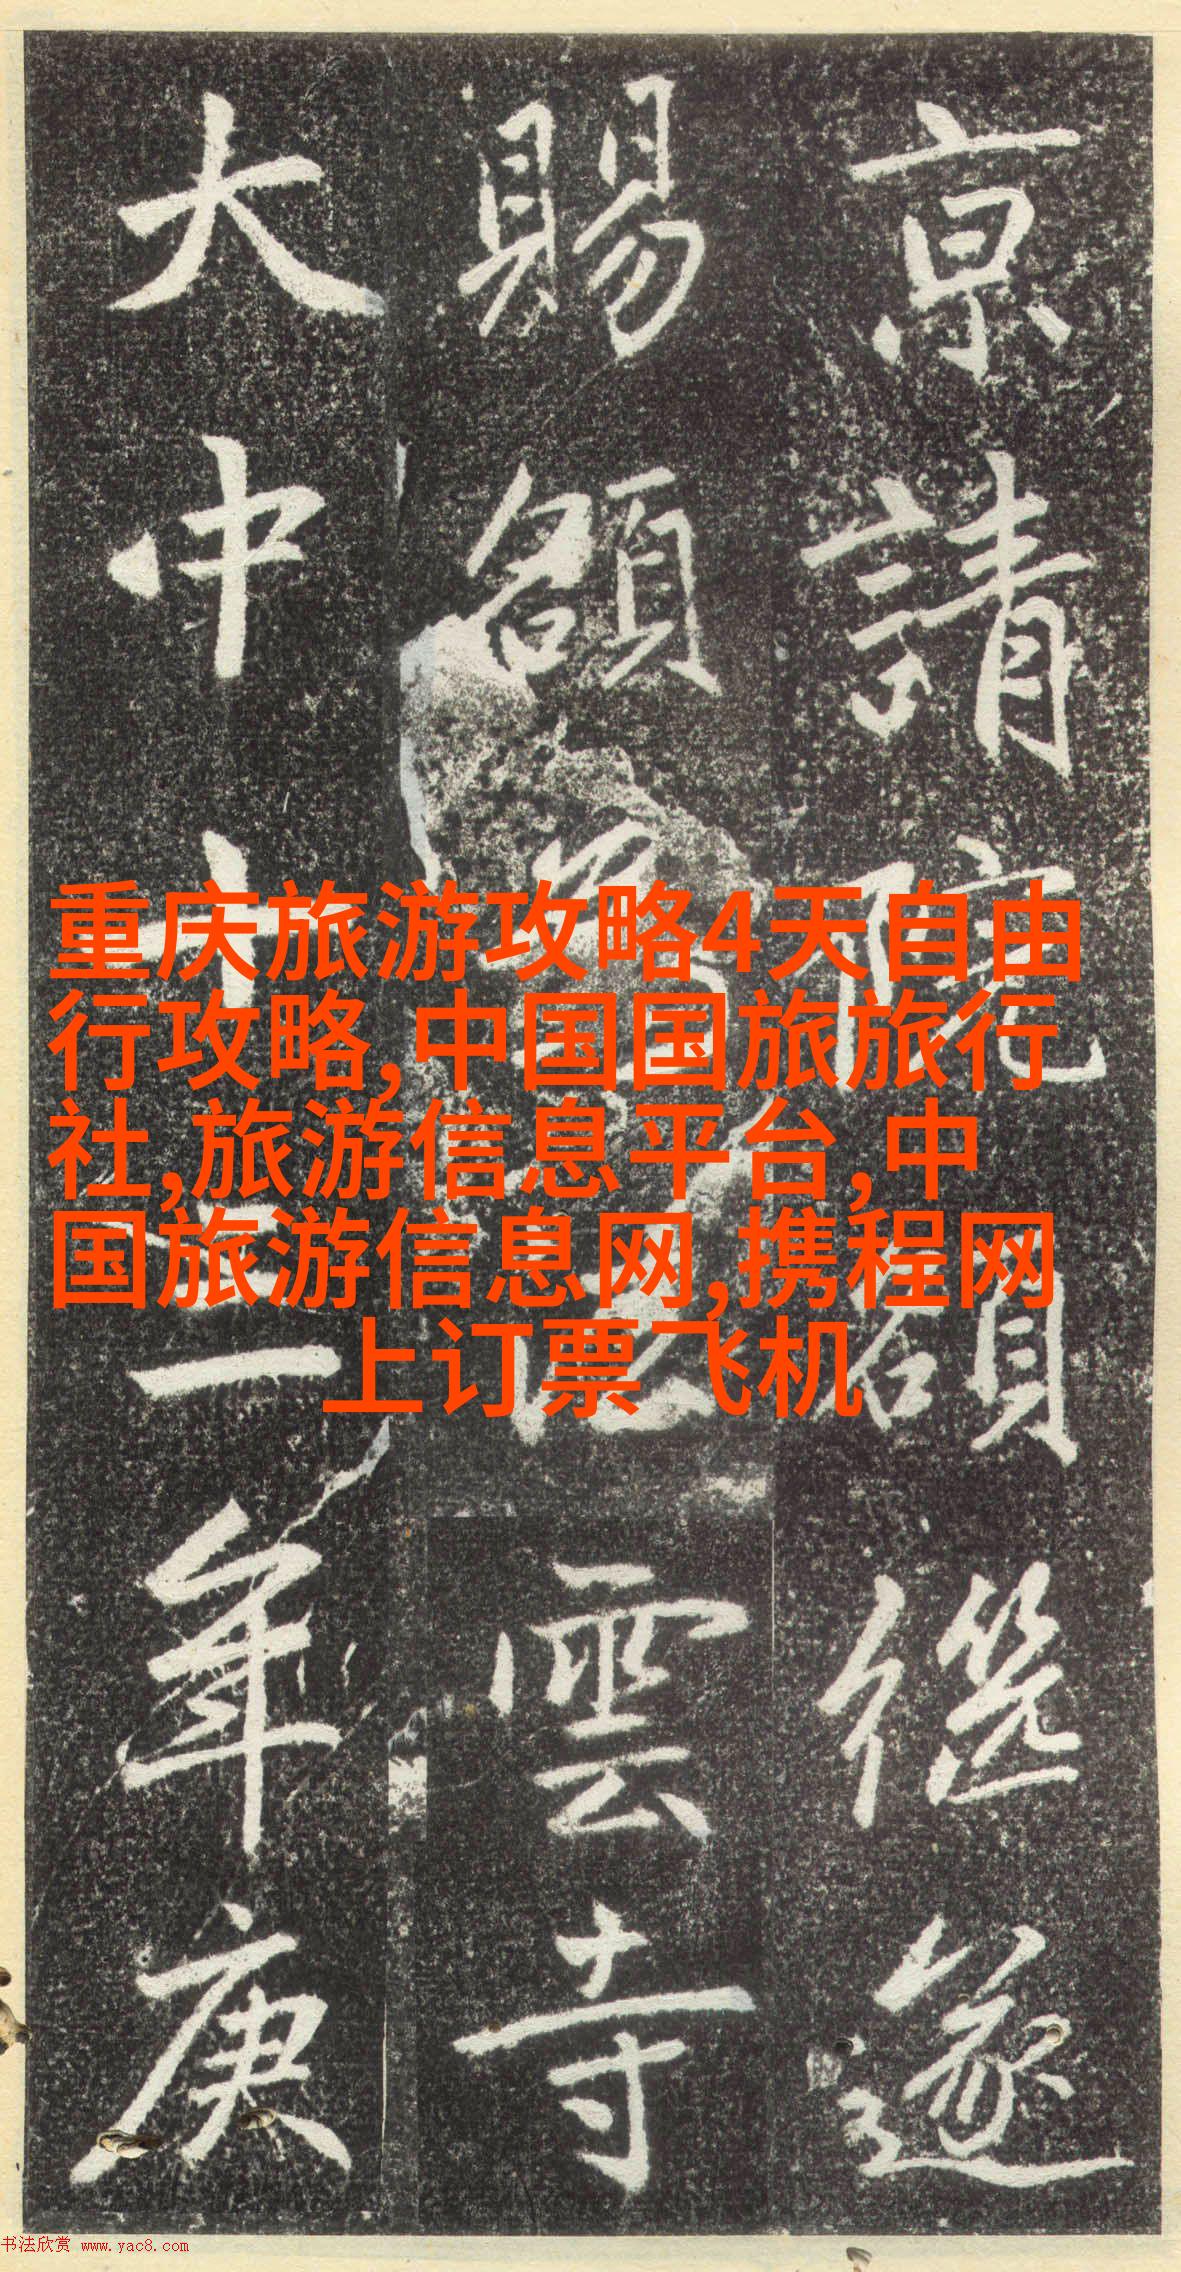 京請院額遂
賜額雲寺
大中十二年庚
重庆旅游攻略4天自由
行攻略,中国国旅旅行
社,旅游信息平台,中
国旅游信息网,携程网
上订票飞机
书法欣赏 www.yac8.com